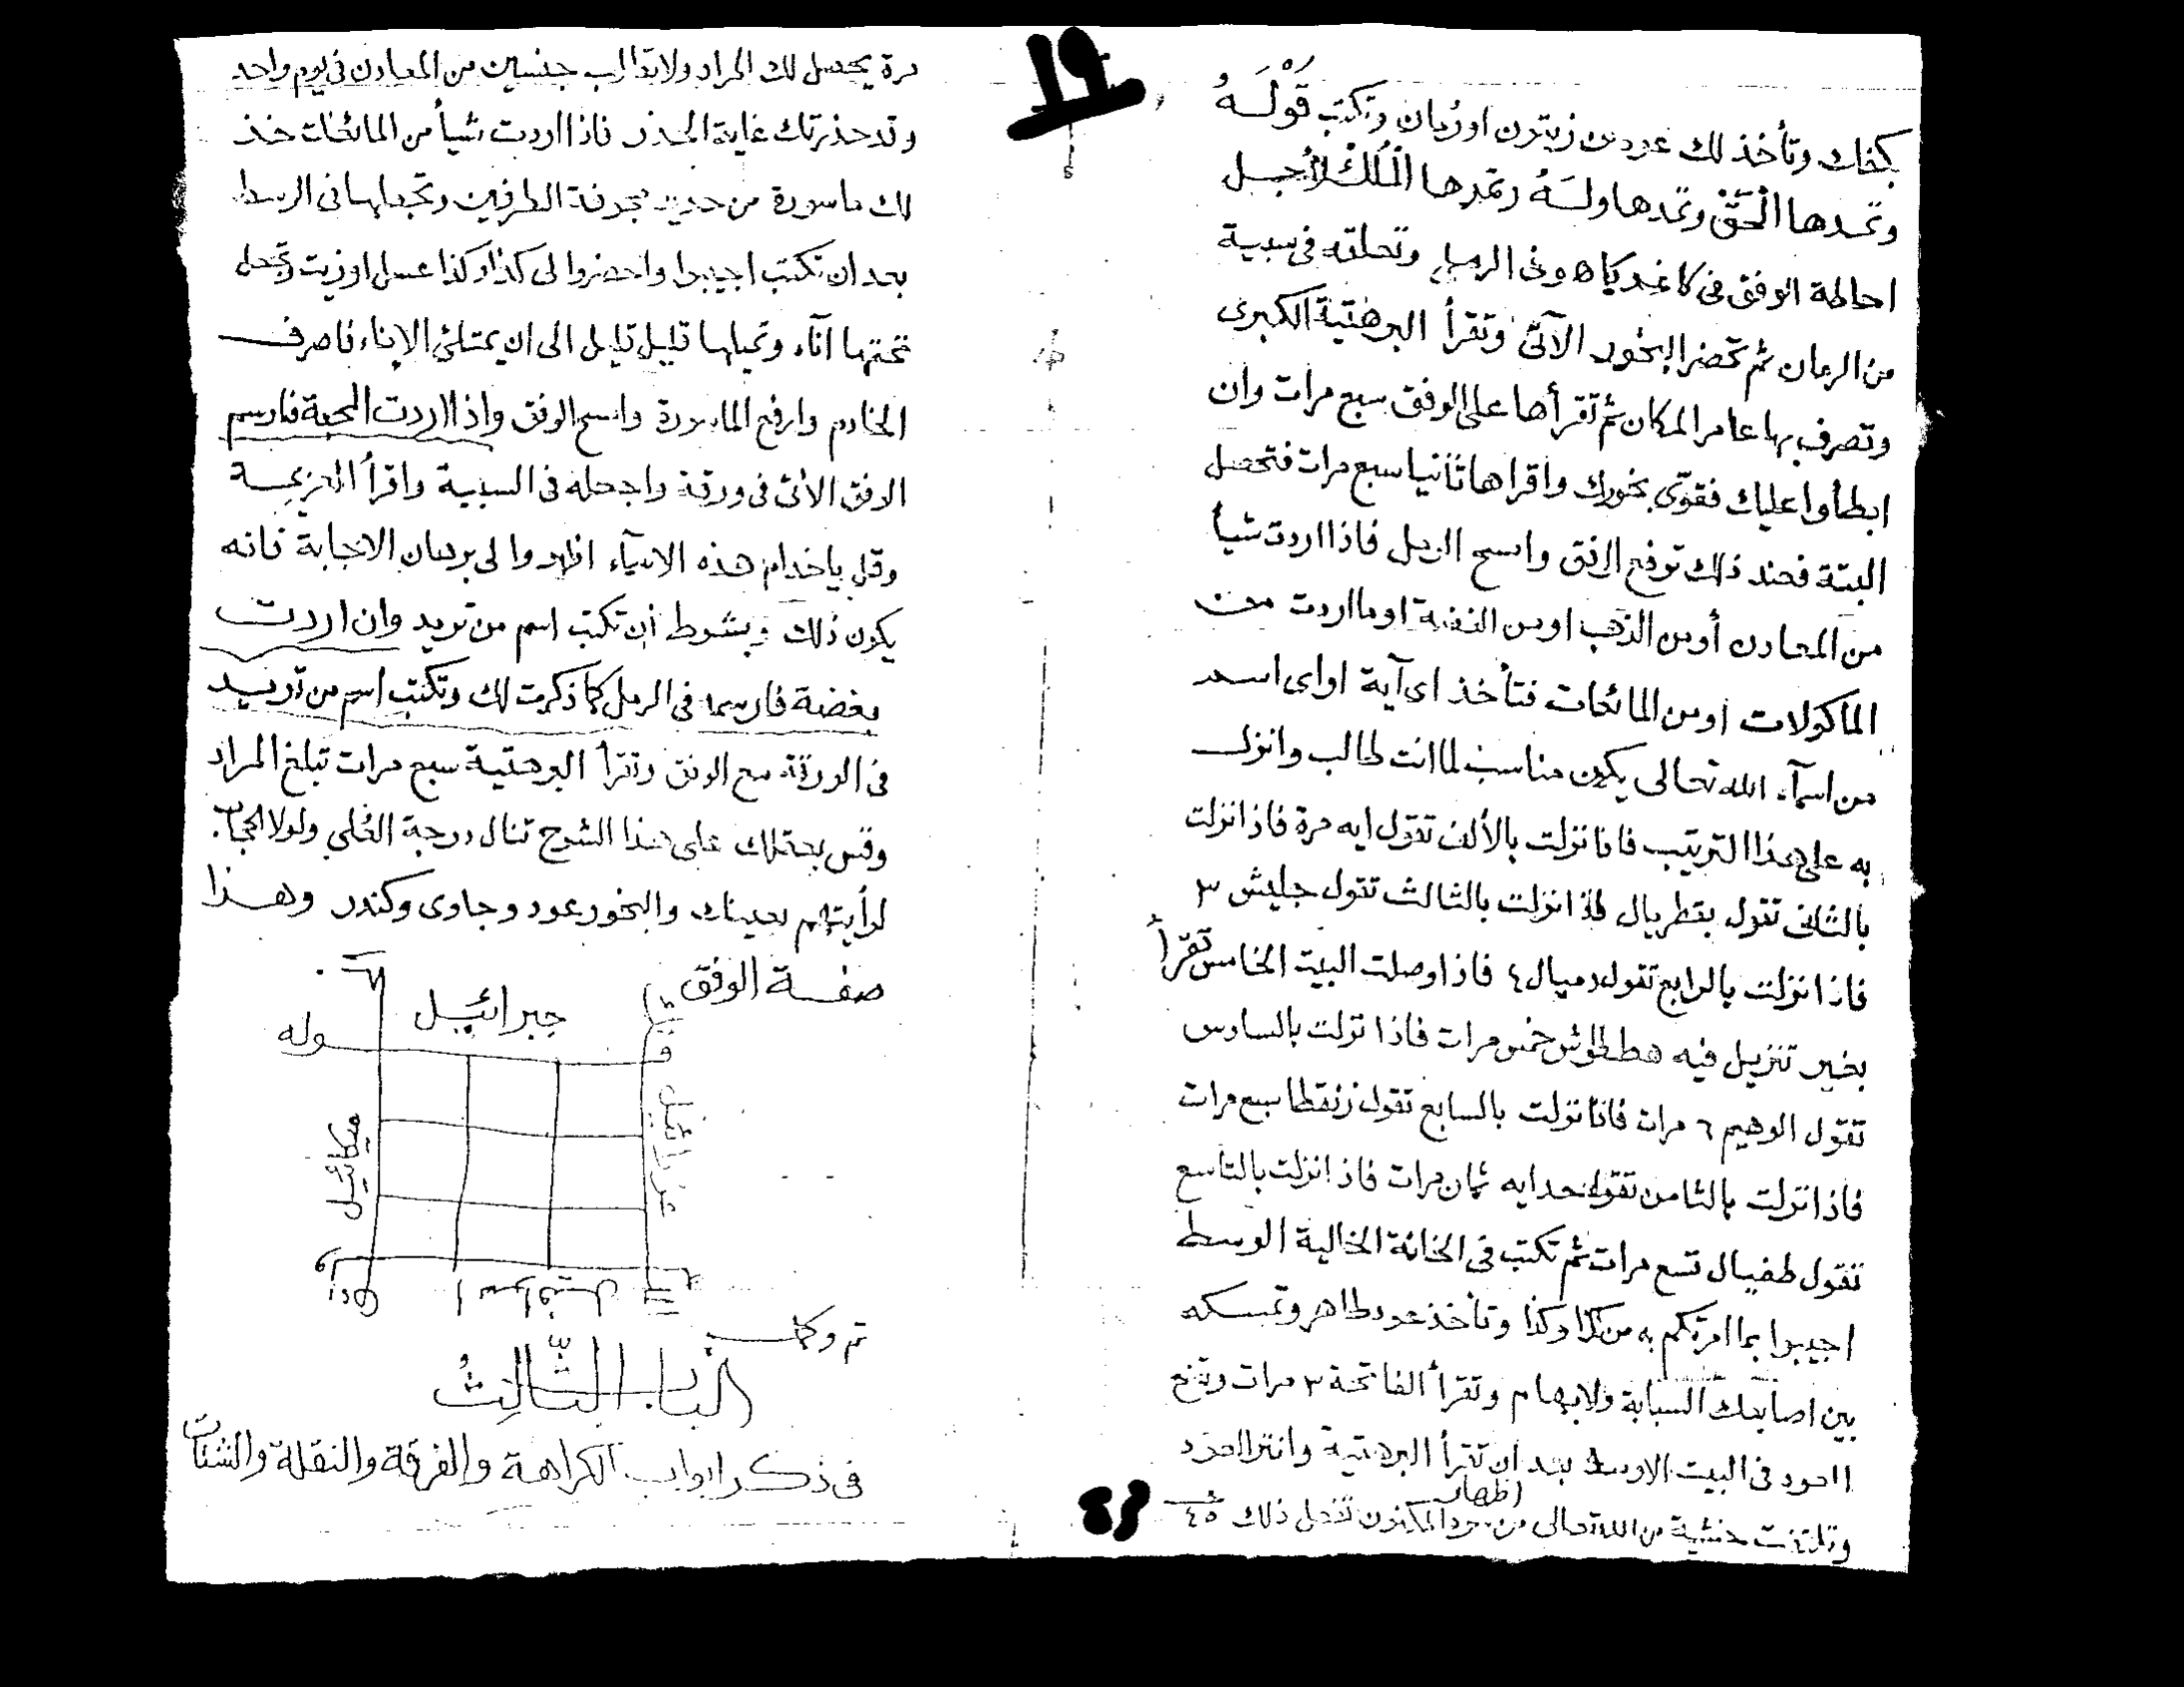 ١٩
بكفك وتأخذ لك عود من زيتون او رمان وتكتب قَوْلَهُ
وتمدها الْحَقّ وتمدها ولَهُ وتمدها الْمُلْكُ لأجل
احاطة الوفق في كاغد كما هو في الرمل وتعلقه في سبية
من الرمان ثم تحضر البخور الآتي وتقرأ البرهتية الكبرى
وتصرف بها عامر المكان ثم تقرأها على الوفق سبع مرات وان
ابطأوا عليك فقوّي بخورك واقراها ثانيا سبع مرات فتحصل
البتة فعند ذلك ترفع الوفق وامسح الرمل فاذا اردت شيأ
من المعادن أو من الذهب او من الفضة او ما اردت من
الماكولات او من المائعات فتأخذ اى آية او اى اسم
من اسمآء الله تعالى يكون مناسب لما انت طالب وانزل
به على هذا الترتيب فاذا نزلت بالألف تقول ايه مرة فاذا نزلت
بالثانى تقول بقطريال فاذا نزلت بالثالث تقول جليش ٣
فاذا نزلت بالرابع تقول دميال ٤ فاذا وصلت البيت الخامس تقرأ
بخير تنزيل فيه هططوش خمس مرات فاذا نزلت بالسادس
تقول الوهيم ٦ مرات فاذا نزلت بالسابع تقول زنقطا سبع مرات
فاذا نزلت بالثامن تقول حدايه ثمان مرات فاذا نزلت بالتاسع
تقول طفيال تسع مرات ثم تكتب في الخانة الخالية الوسط
اجيبوا بما امرتكم به من كذا وكذا وتأخذ عود طاهر وتمسكه
بين اصابعك السبابة والابهام وتقرأ الفاتحة ٣ مرات وتضع
العود في البيت الاوسط بعد ان تقرأ البرهتية وانتر العود
اظهار
من الله تعالى من المكنون تفعل ذلك ٤٥
مرة يحصل لك المراد ولا تطالب جنسين من المعادن في يوم واحد
وقد حذرتك غاية الحذر فاذا اردت شيأ من المائعات خذ
لك ماسورة من حديد مجوفة الطرفين وتجعلها في الوسط
بعد ان تكتب اجيبوا واحضروا لى كذا وكذا عسل او زيت وتجعل
تحتها انآء وتميلها قليل قليل الى ان يمتلئ الإناء فاصرف
الخادم وارفع الماسورة وامسح الوفق واذا اردت المحبة فارسم
الوفق الأتى في ورقة واجعله في السبية واقرأ العزيمة
وقل يا خدام هذه الاسمآء اظهروا لى برهان الاجابة فانه
يكون ذلك وبشرط أن تكتب اسم من تريد وان اردت
بغضة فارسمه في الرمل كما ذكرت لك وتكتب اسم من تريد
في الورقة مع الوفق وتقرأ البرهتية سبع مرات تبلغ المراد
وقس بعقلك على هذا الشرح تنال درجة العُلي ولولا الحجاب
لرأيتهم بعينك والبخور عود وجاوى وكندر وهذا
صفة الوفق
جبرائيل
قوله
عزرائيل
ميكائيل
اسرافيل
تم وكمل
الباب الثَّالِثُ
في ذكر ابواب الكراهة والفرقة والنقلة والشتات